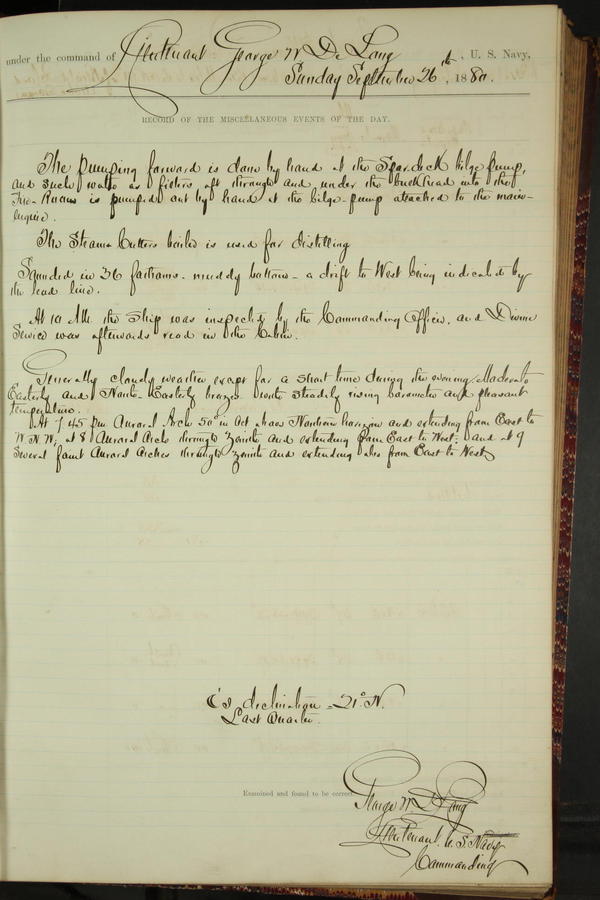 under the command of Lieutenant George W. De Long, U. S. Navy,
Sunday September 26th, 1880.
RECORD OF THE MISCELLANEOUS EVENTS OF THE DAY.
The pumping forward is done by hand at the Spar deck bilge pump,
and such water as filters aft through and under the bulkhead into the
Fire-Room is pumped out by hand at the bilge-pump attached to the main-
engine.
The Steam Cutters boiler is used for distilling
Sounded in 36 fathoms - muddy bottom - a drift to West being indicated by
the lead line.
At 10 AM the Ship was inspected by the Commanding Officer, and Divine
Service was afterwards read in the Cabin.
Generally cloudy weather except for a short time during the evening. Moderate
Easterly and North Easterly breezes with steadily rising barometer and pleasant
temperature.
At 7.45 pm Auroral Arch 50° in alt above Northern horizon and extending from East to
W N W; at 8 Auroral Arch through zenith and extending from East to West; and at 9
Several faint Auroral Arches through zenith and extending also from East to West
☾'s declination = 21° N.
Last Quarter.
Examined and found to be correct.
George W. De Long
Lieutenant U. S. Navy
Commanding